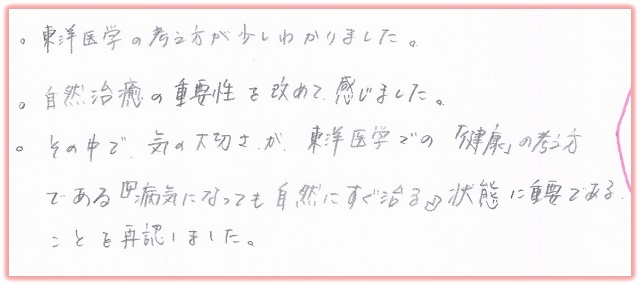 。東洋医学の考え方が少しわかりました。
。自然治癒の重要性を改めて感じました。
。その中で、気の大切さが、東洋医学での「健康」の考え方
である『病気になっても自然にすぐ治る』状態に重要である
ことを再認しました。